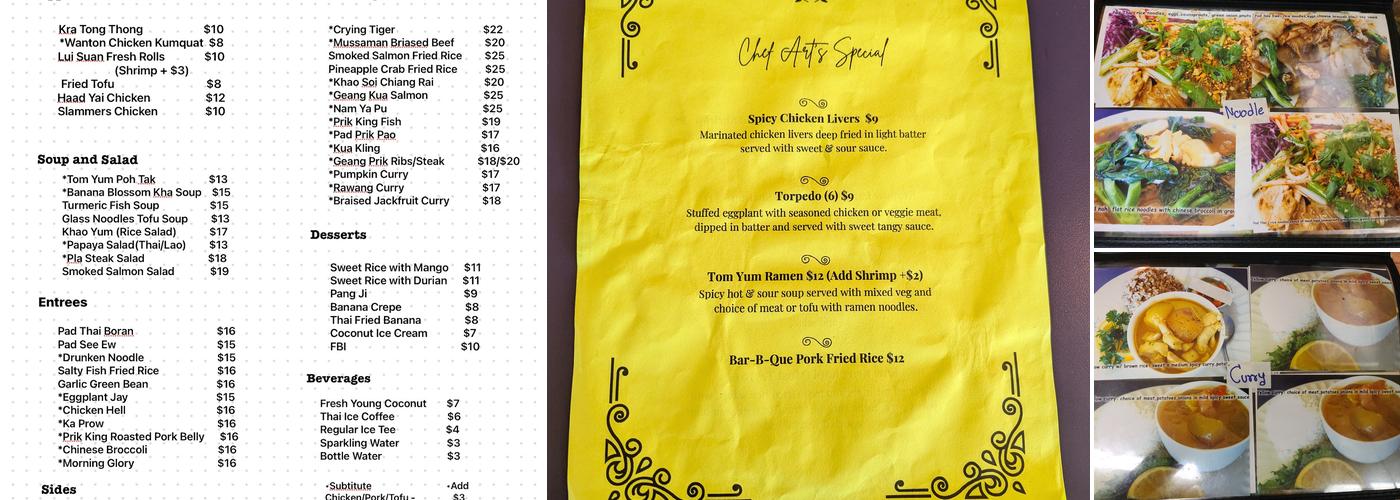 Kra Tong Thong $10
*Wanton Chicken Kumquat $8
Lui Suan Fresh Rolls $10
(Shrimp + $3)
Fried Tofu $8
Haad Yai Chicken $12
Slammers Chicken $10
Soup and Salad
*Tom Yum Poh Tak $13
*Banana Blossom Kha Soup $15
Turmeric Fish Soup $15
Glass Noodles Tofu Soup $13
Khao Yum (Rice Salad) $17
*Papaya Salad(Thai/Lao) $13
*Pla Steak Salad $18
Smoked Salmon Salad $19
Entrees
Pad Thai Boran $16
Pad See Ew $15
*Drunken Noodle $15
Salty Fish Fried Rice $16
Garlic Green Bean $16
*Eggplant Jay $15
*Chicken Hell $16
*Ka Prow $16
*Prik King Roasted Pork Belly $16
*Chinese Broccoli $16
*Morning Glory $16
Sides
*Crying Tiger $22
*Mussaman Briased Beef $20
Smoked Salmon Fried Rice $25
Pineapple Crab Fried Rice $25
*Khao Soi Chiang Rai $20
*Geang Kua Salmon $25
*Nam Ya Pu $25
*Prik King Fish $19
*Pad Prik Pao $17
*Kua Kling $16
*Geang Prik Ribs/Steak $18/$20
*Pumpkin Curry $17
*Rawang Curry $17
*Braised Jackfruit Curry $18
Desserts
Sweet Rice with Mango $11
Sweet Rice with Durian $11
Pang Ji $9
Banana Crepe $8
Thai Fried Banana $8
Coconut Ice Cream $7
FBI $10
Beverages
Fresh Young Coconut $7
Thai Ice Coffee $6
Regular Ice Tee $4
Sparkling Water $3
Bottle Water $3
•Substitute •Add
Chicken/Pork/Tofu - $3
Chef Art's Special
Spicy Chicken Livers $9
Marinated chicken livers deep fried in light batter
served with sweet & sour sauce.
Torpedo (6) $9
Stuffed eggplant with seasoned chicken or veggie meat,
dipped in batter and served with sweet tangy sauce.
Tom Yum Ramen $12 (Add Shrimp +$2)
Spicy hot & sour soup served with mixed veg and
choice of meat or tofu with ramen noodles.
Bar-B-Que Pork Fried Rice $12
Noodle
flat rice noodles with chinese broccoli in
Curry
curry: choice of meat, potatoes onions in mild spicy sweet